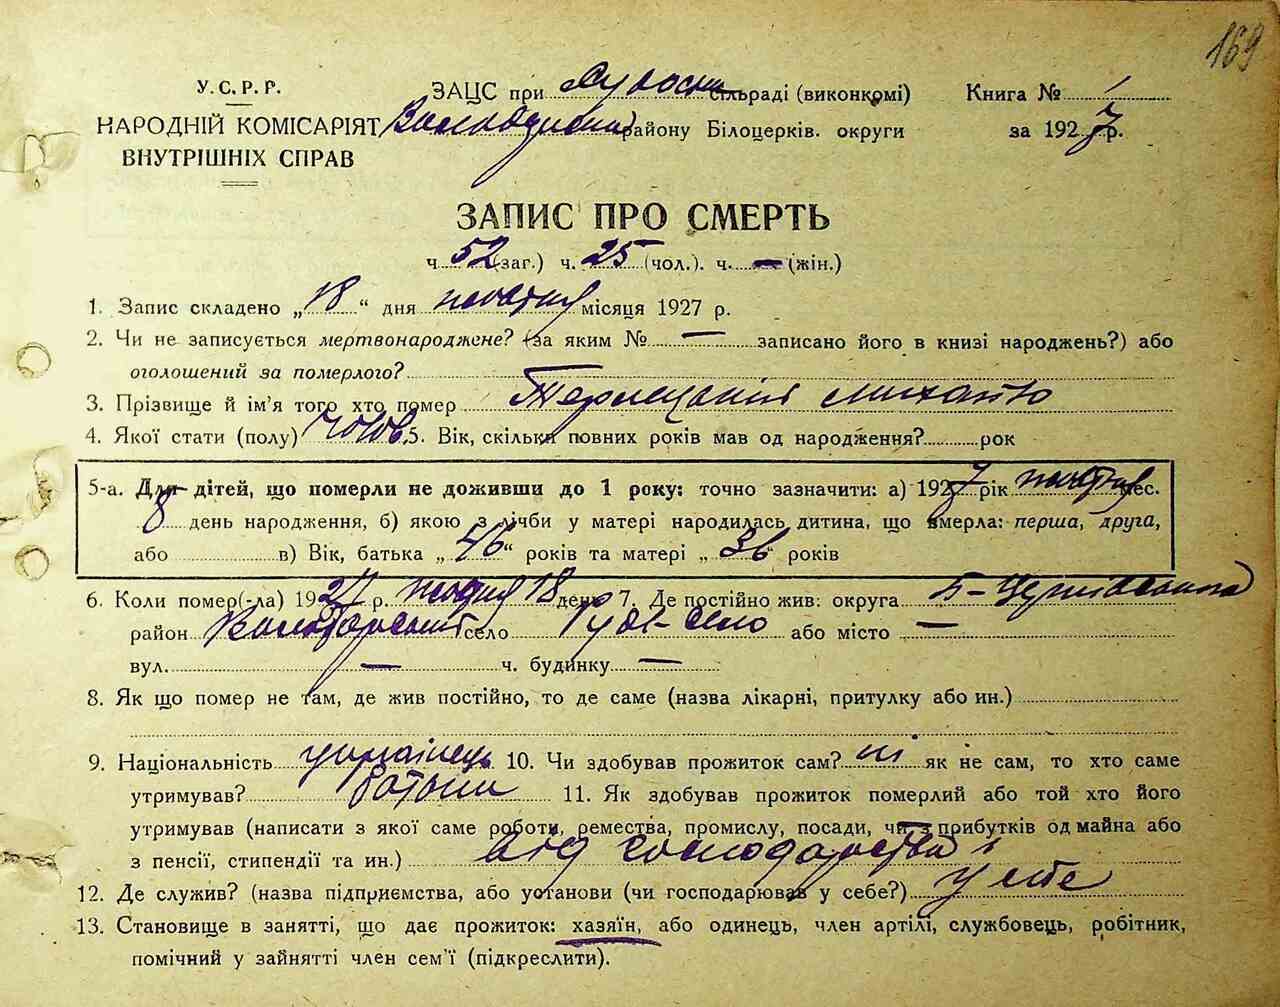 169
У. С. Р. Р.
НАРОДНІЙ КОМІСАРІЯТ
ВНУТРІШНІХ СПРАВ
ЗАЦС при сільраді (виконкомі)
району Білоцерків. округи
Книга № 1
за 1927 р.
ЗАПИС ПРО СМЕРТЬ
ч. 52 (заг.) ч. 25 (чол.). ч. — (жін.)
1. Запис складено „18“ дня жовтня місяця 1927 р.
2. Чи не записується мертвонароджене? (за яким № — записано його в книзі народжень?) або
оголошений за померлого?
3. Прізвище й ім'я того хто помер Михайло
4. Якої стати (полу) чолов. 5. Вік, скільки повних років мав од народження? рок
5-а. Для дітей, що померли не доживши до 1 року: точно зазначити: а) 1927 рік жовтня мес.
8 день народження, б) якою з лічби у матері народилась дитина, що вмерла: перша, друга,
або в) Вік, батька „46“ років та матері „36“ років
6. Коли помер(-ла) 1927 р. жовтня 18 день 7. Де постійно жив: округа Б-Церківська
район село Руде-село або місто —
вул. — ч. будинку —
8. Як що помер не там, де жив постійно, то де саме (назва лікарні, притулку або ин.)
9. Національність українець 10. Чи здобував прожиток сам? ні як не сам, то хто саме
утримував? батьки 11. Як здобував прожиток померлий або той хто його
утримував (написати з якої саме роботи, ремества, промислу, посади, чи з прибутків од майна або
з пенсії, стипендії та ин.) від господарства
12. Де служив? (назва підприємства, або установи (чи господарював у себе?) у себе
13. Становище в занятті, що дає прожиток: хазяїн, або одинець, член артілі, службовець, робітник,
помічний у зайнятті член сем'ї (підкреслити).